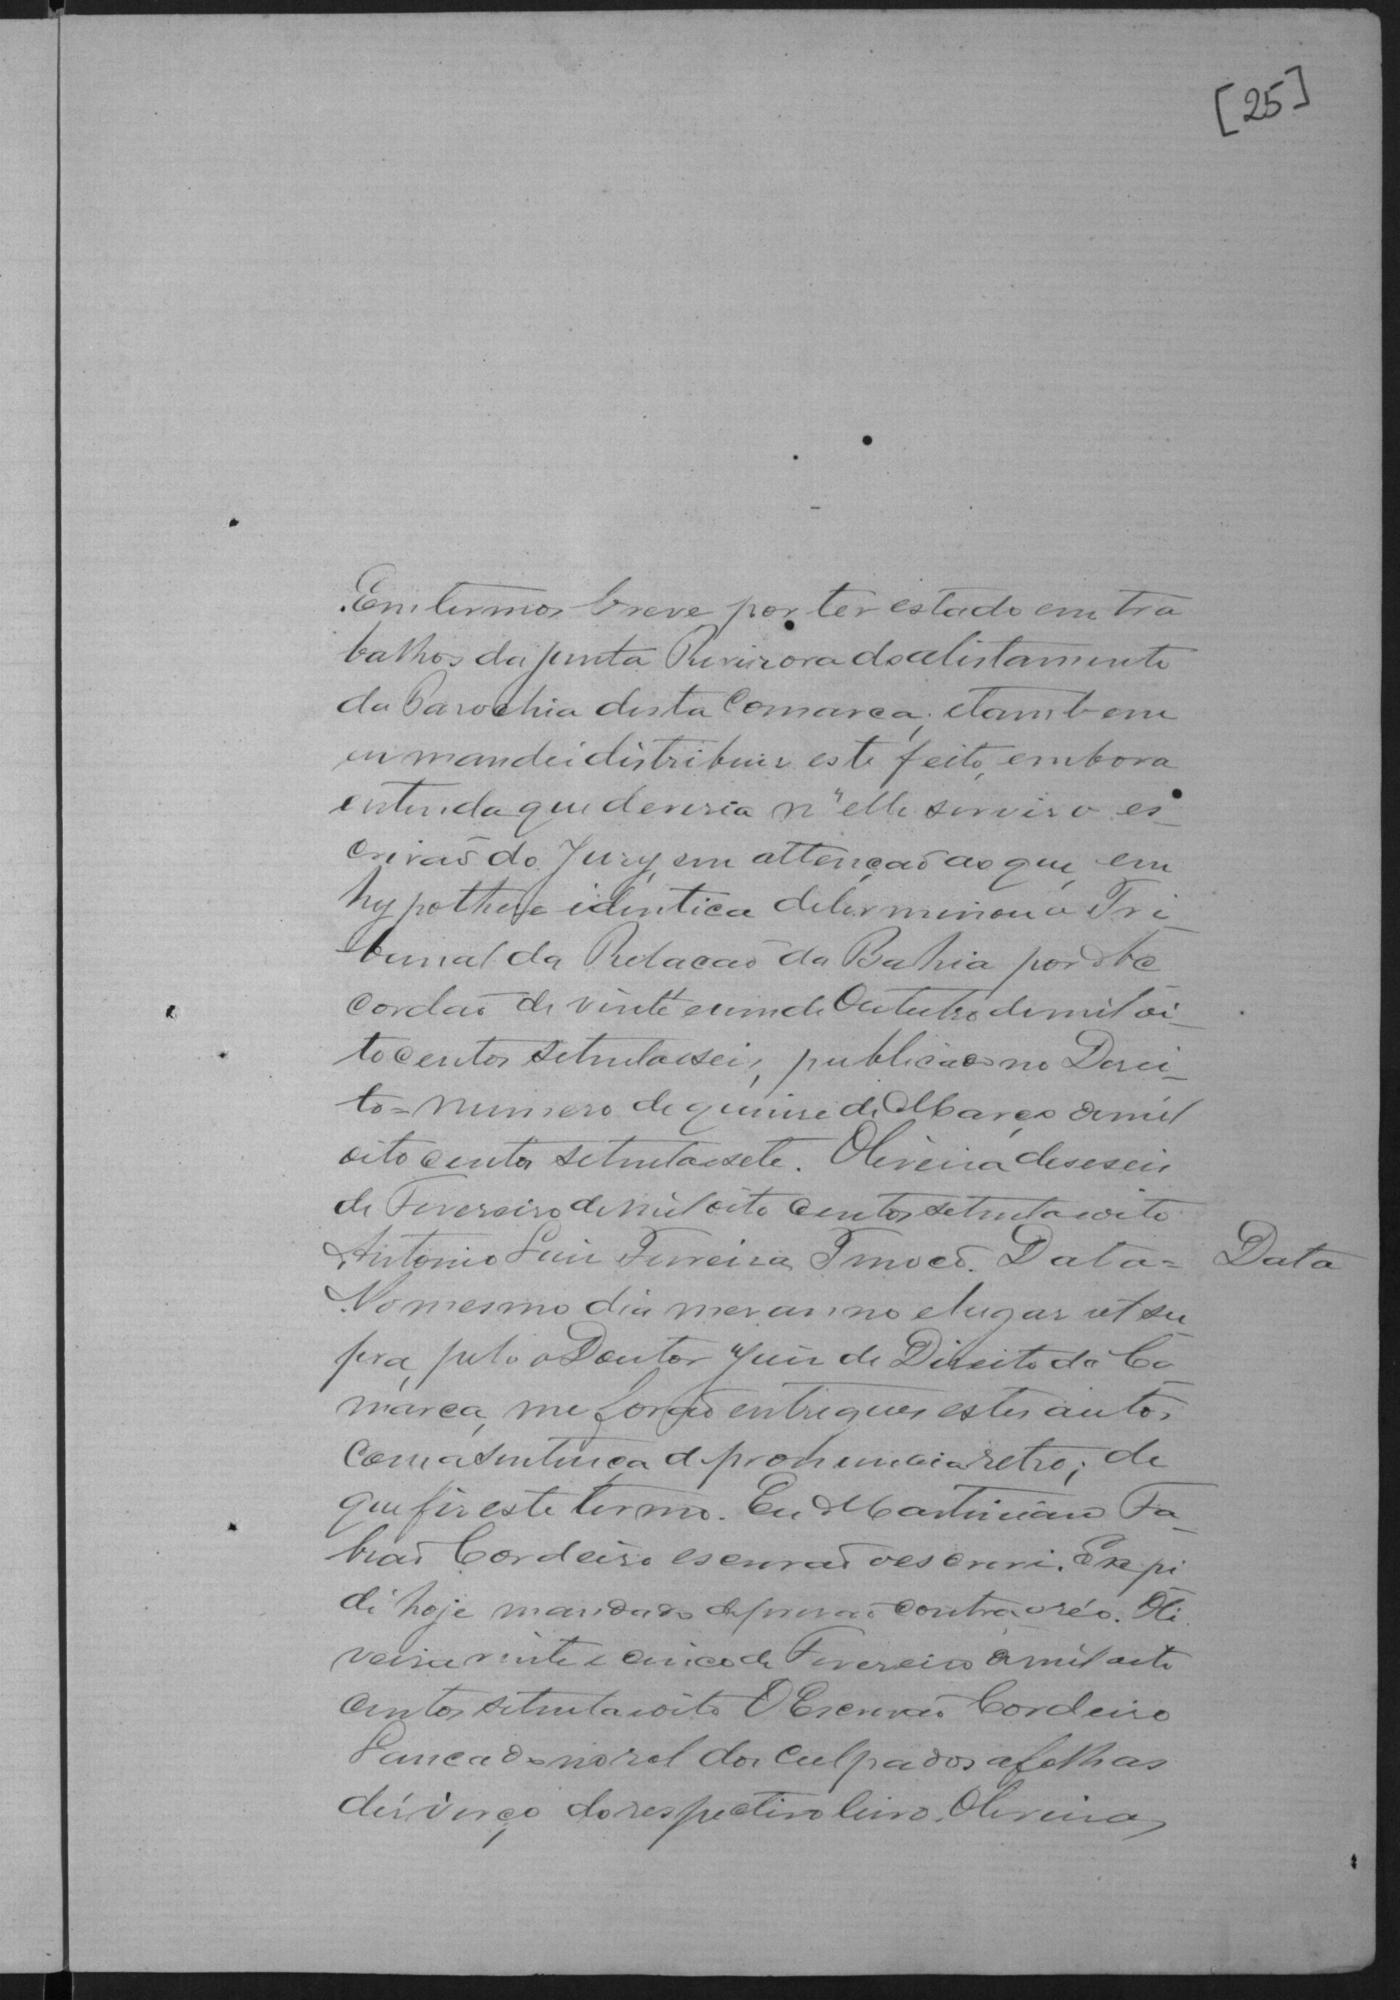 [25]
Em termos breve por ter estado em tra
balhos da junta Revizora do alistamento
da Parochia desta Comarca; e tambem
eu mandei distribuir este feito, embora
entenda que deveria n'elle servir o es-
crivaõ do Jury, em attençaõ ao que, em
hypothese identica determinou o Tri-
bunal da Relacaõ da Bahia por Ac
cordaõ de vinte e um de Outubro de mil oi-
to centos setenta e seis, publicado no Derei-
to = numero de quinse de Março de mil
oito centos setenta e sete. Oliveira deseseis
de Fevereiro de mil oito centos setenta e oito
Antonio Luis Ferreira Tinoco. Data = Data
No mesmo dia mes anno e lugar ut su
pra, pelo o Doutor Juis de Direito da Co
marca, me foraõ entregues estes autos
com a sentença de pronuncia retro; de
que fis este termo. Eu Martiniano Fa-
braõ Cordeiro escrivaõ o escrevi. Expi
di hoje mandado de prisaõ contra o réo. Oli
veira vinte e cinco de Fevereiro de mil oito
centos setenta e oito O Escrivaõ Cordeiro
Lancado no rol dos culpados a folhas
déz verço do respectivo livro. Oliveira,